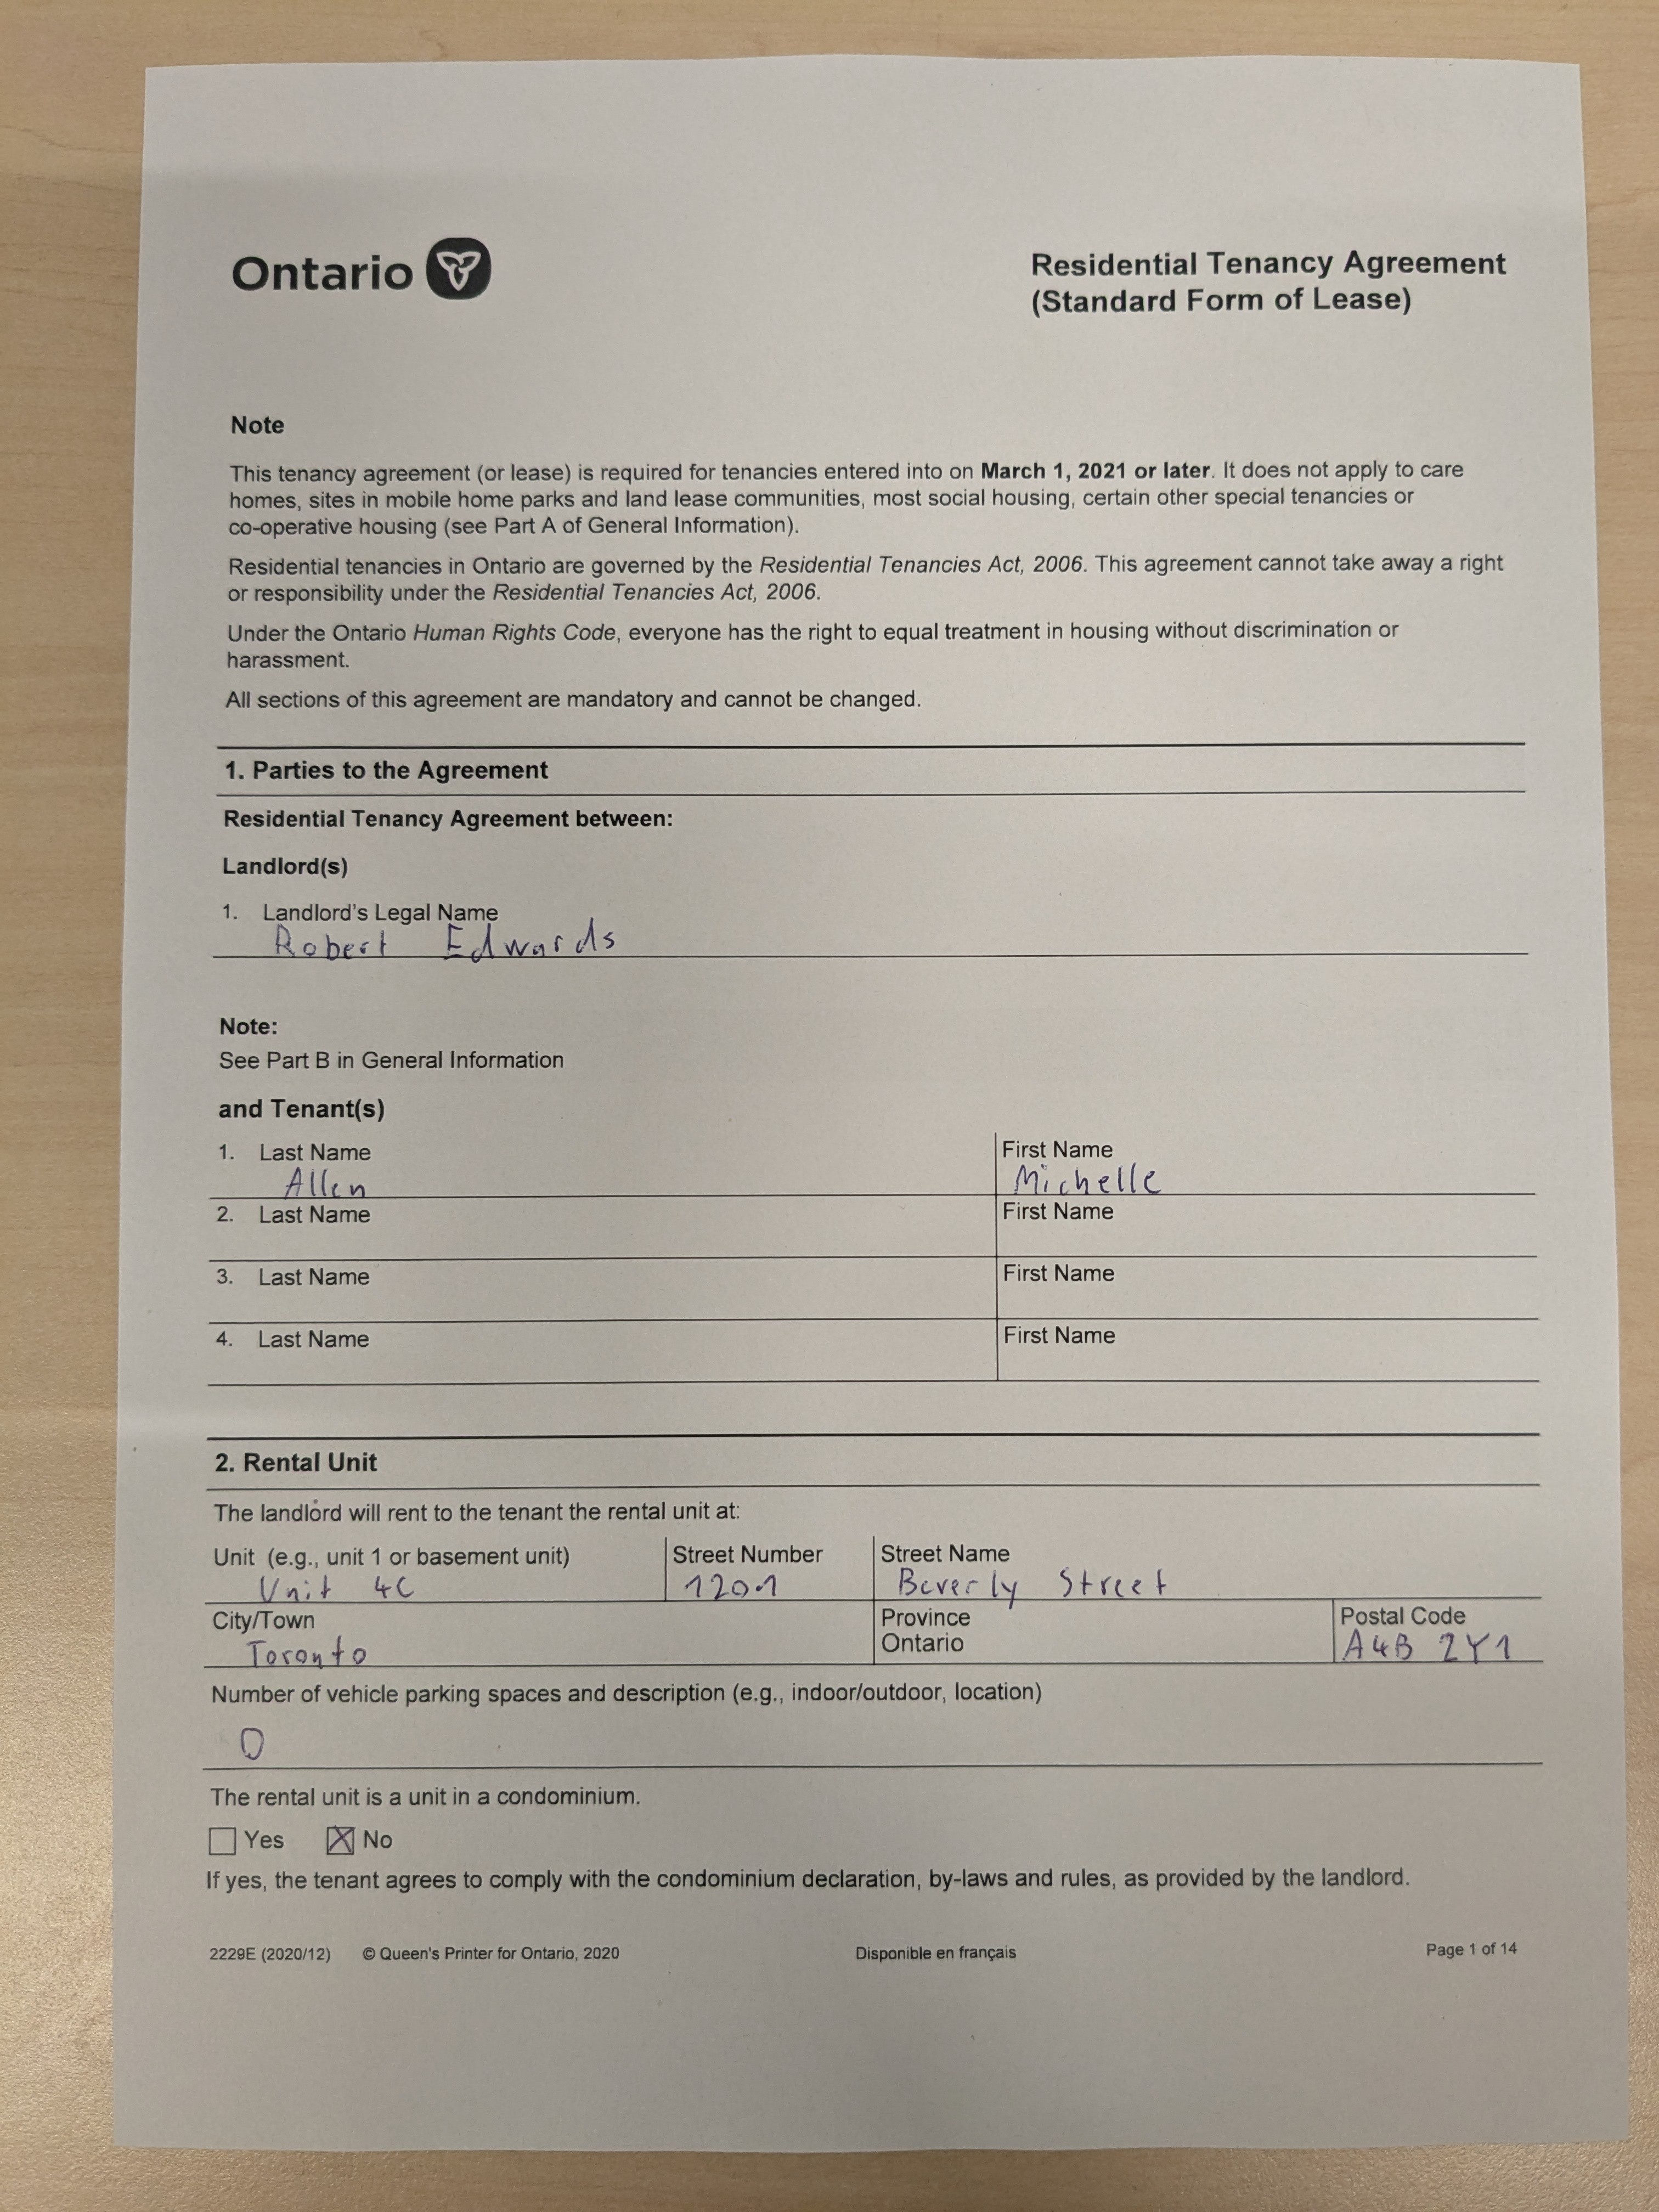 Ontario
Residential Tenancy Agreement
(Standard Form of Lease)
Note
This tenancy agreement (or lease) is required for tenancies entered into on March 1, 2021 or later. It does not apply to care
homes, sites in mobile home parks and land lease communities, most social housing, certain other special tenancies or
co-operative housing (see Part A of General Information).
Residential tenancies in Ontario are governed by the Residential Tenancies Act, 2006. This agreement cannot take away a right
or responsibility under the Residential Tenancies Act, 2006.
Under the Ontario Human Rights Code, everyone has the right to equal treatment in housing without discrimination or
harassment.
All sections of this agreement are mandatory and cannot be changed.
1. Parties to the Agreement
Residential Tenancy Agreement between:
Landlord(s)
1. Landlord's Legal Name
Robert Edwards
Note:
See Part B in General Information
and Tenant(s)
1. Last Name First Name
Allen Michelle
2. Last Name First Name
3. Last Name First Name
4. Last Name First Name
2. Rental Unit
The landlord will rent to the tenant the rental unit at:
Unit (e.g., unit 1 or basement unit) Street Number Street Name
Unit 4C 1201 Beverly Street
City/Town Province Postal Code
Toronto Ontario A4B 2Y1
Number of vehicle parking spaces and description (e.g., indoor/outdoor, location)
0
The rental unit is a unit in a condominium.
Yes No
If yes, the tenant agrees to comply with the condominium declaration, by-laws and rules, as provided by the landlord.
2229E (2020/12) © Queen's Printer for Ontario, 2020 Disponible en français Page 1 of 14